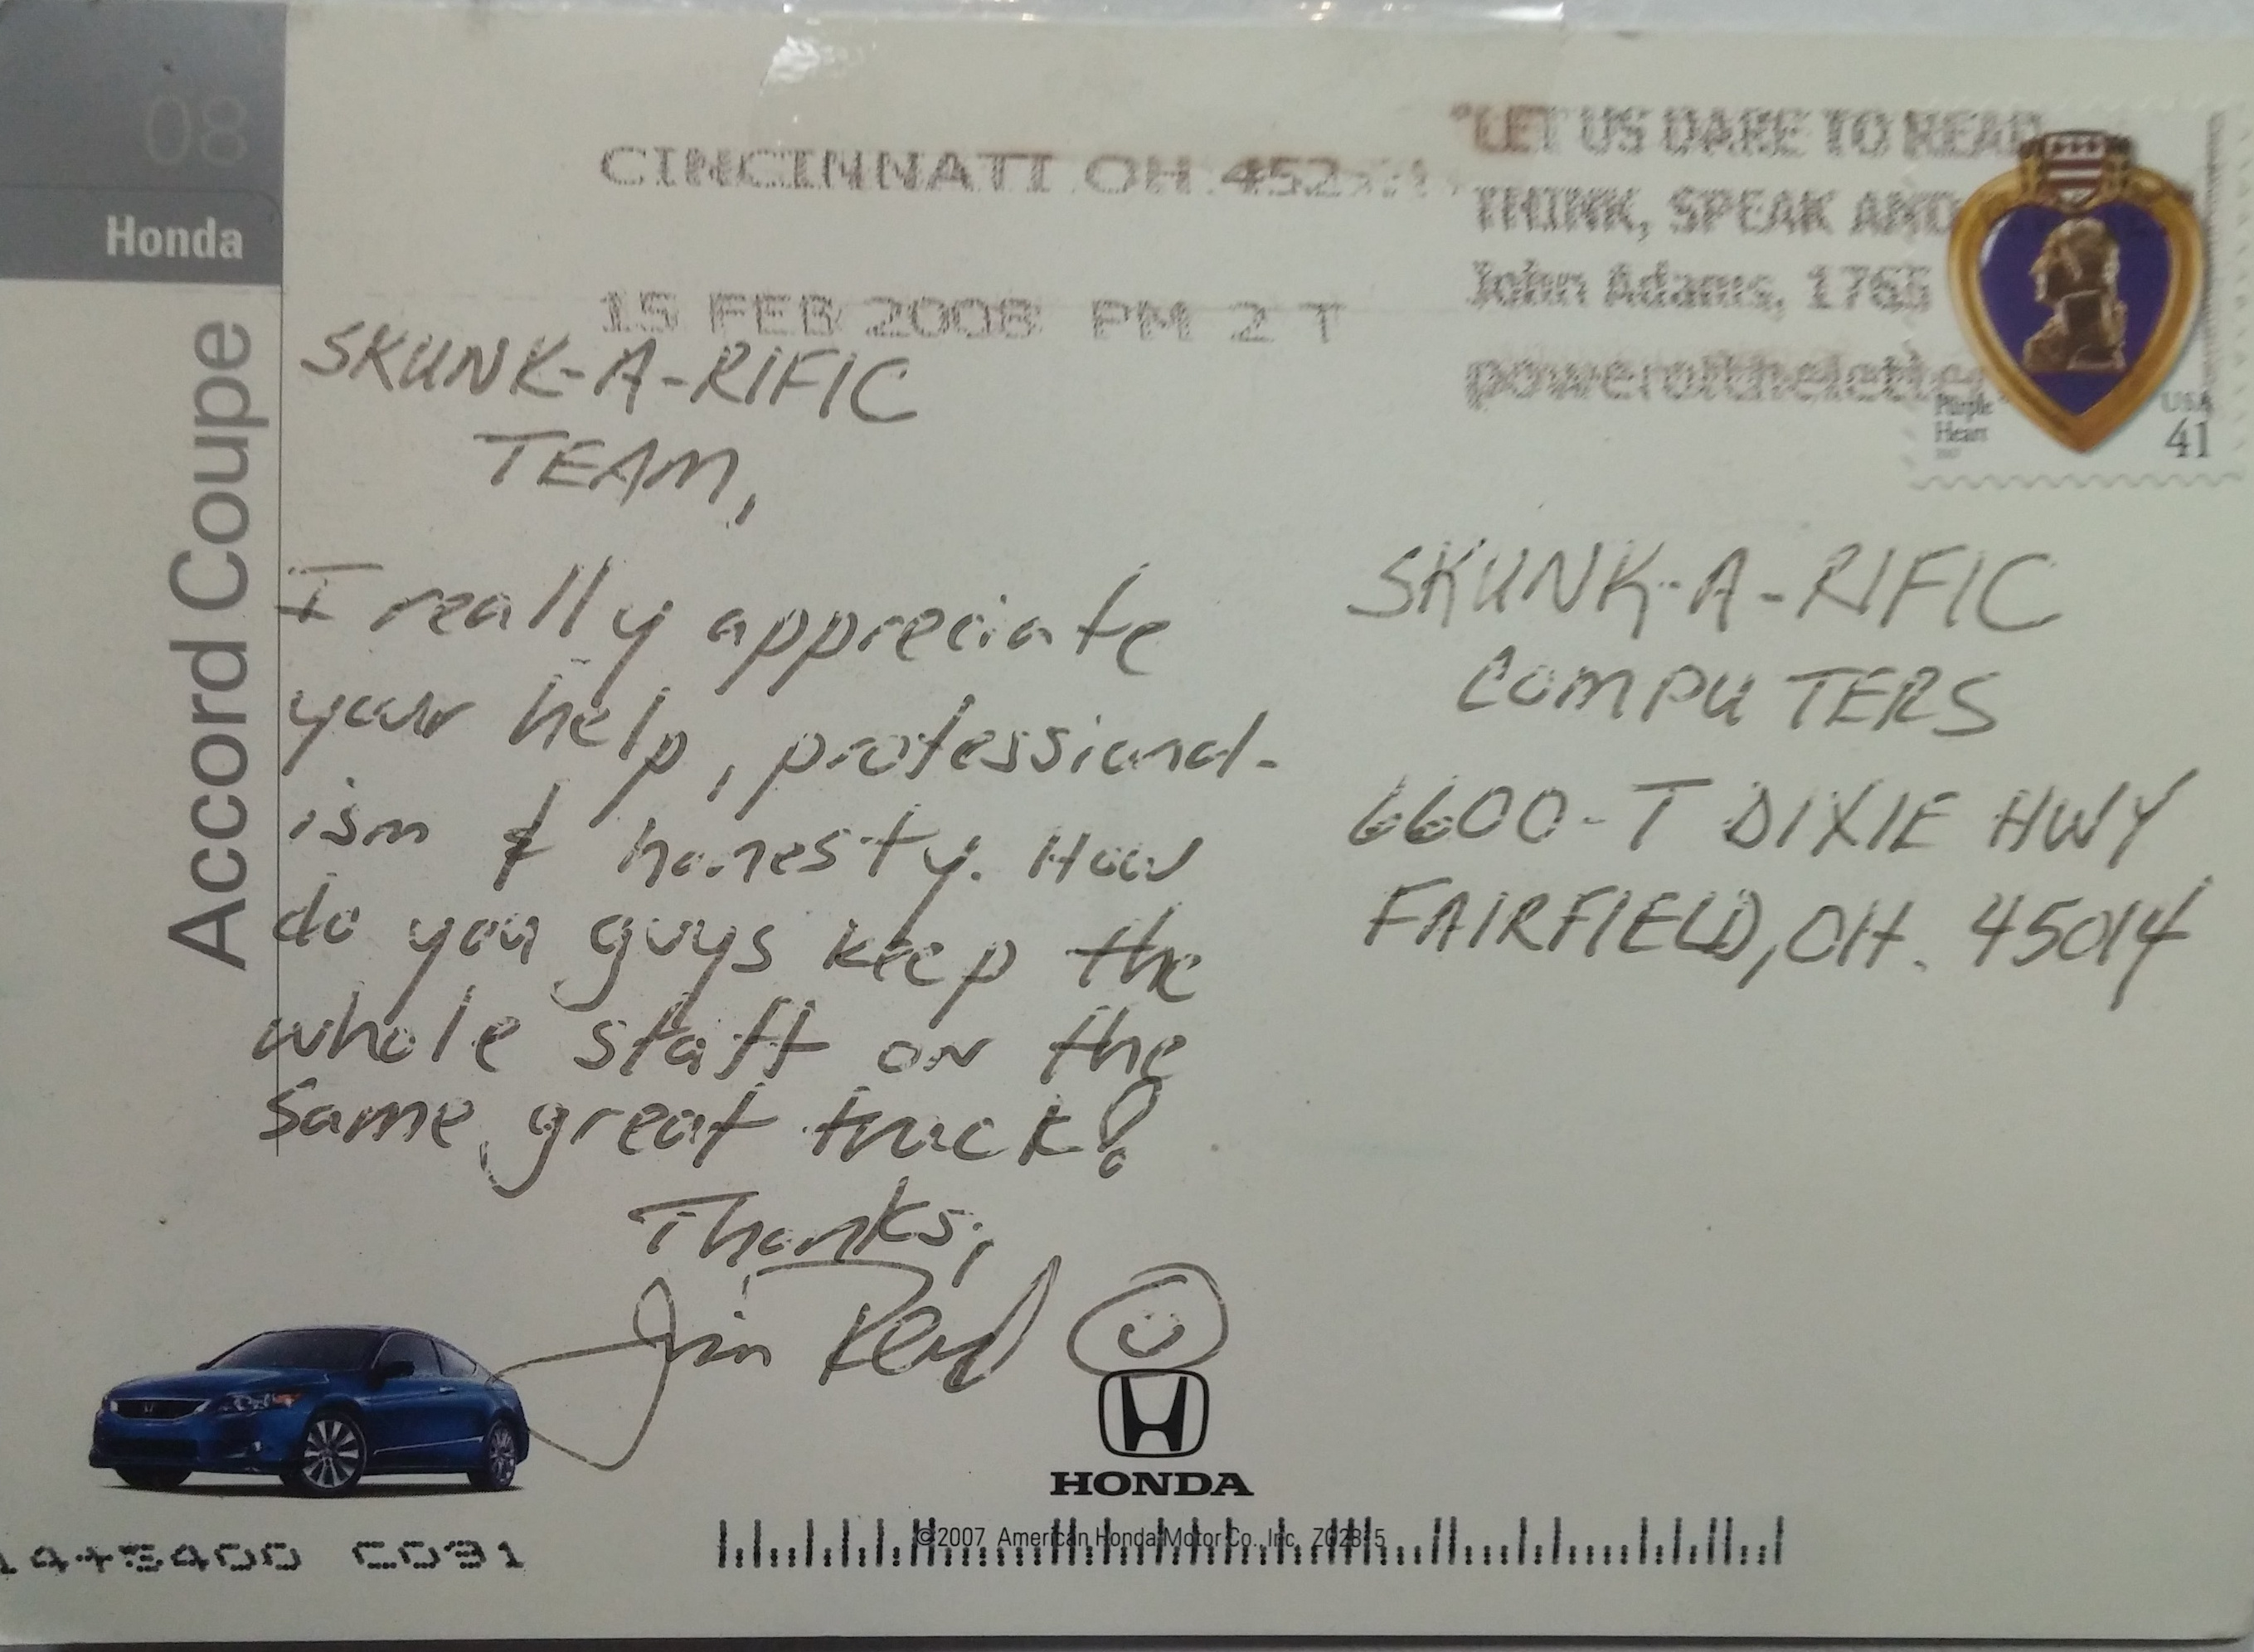 08
Honda
Accord Coupe
CINCINNATI OH 452
15 FEB 2008 PM 2 T
"LET US DARE TO READ
THINK, SPEAK AND
John Adams, 1765
poweroftheletter
Purple
Heart
2007
USA
41
SKUNK-A-RIFIC
TEAM,
I really appreciate
your help, professional-
ism & honesty. How
do you guys keep the
whole staff on the
same great track?
Thanks,
Jim
SKUNK-A-RIFIC
COMPUTERS
6600-T DIXIE HWY
FAIRFIELD, OH. 45014
HONDA
©2007 American Honda Motor Co., Inc. ZO2815
14+5400 C031